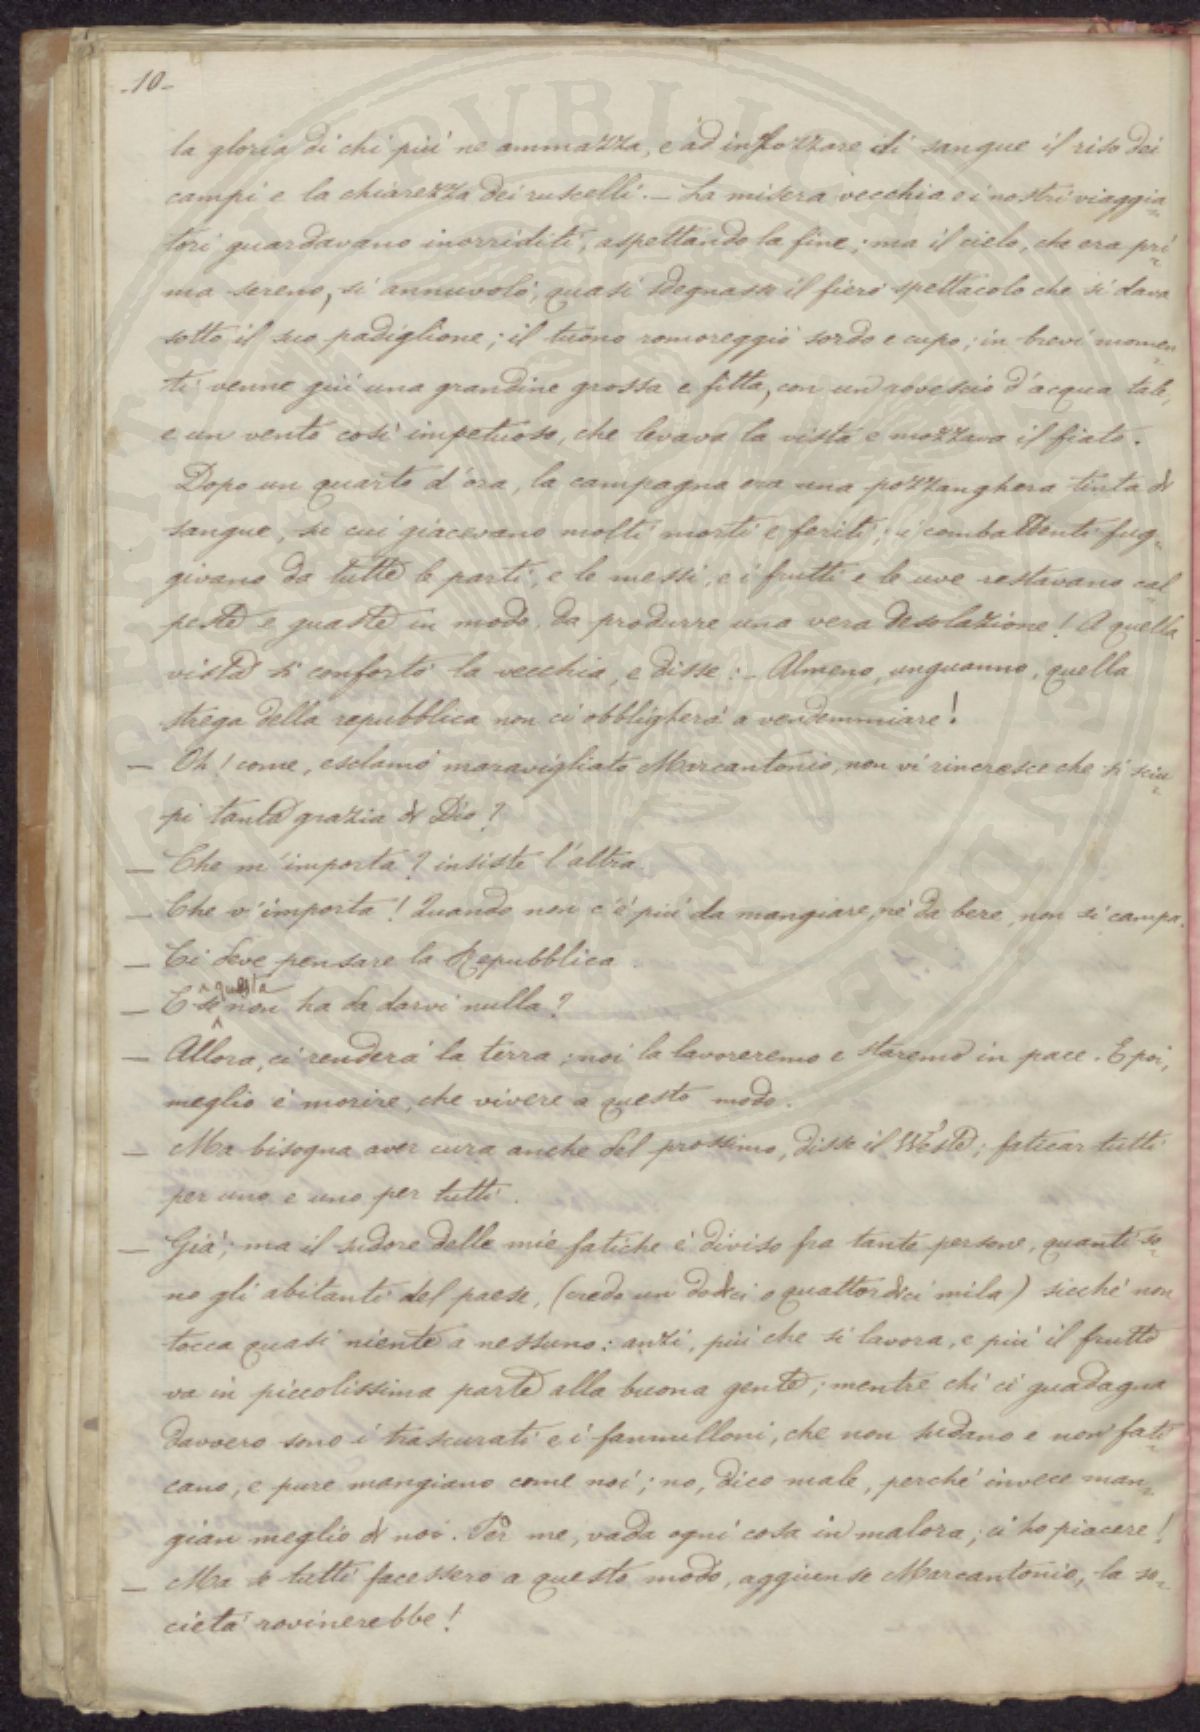 -10-
la gloria di chi più ne ammazza, e ad insozzare di sangue il riso dei
campi e la chiarezza dei ruscelli. — La misera vecchia e i nostri viaggia=
tori guardavano inorriditi, aspettando la fine; ma il cielo, che era pri=
ma sereno, si annuvolò, quasi sdegnasse il fiero spettacolo che si dava
sotto il suo padiglione; il tuono romoreggiò sordo e cupo; in brevi momen=
ti venne giù una grandine grossa e fitta, con un rovescio d'acqua tale,
e un vento così impetuoso, che levava la vista e mozzava il fiato.
Dopo un quarto d'ora, la campagna era una pozzanghera tinta di
sangue, su cui giacevano molti morti e feriti; i combattenti fug=
givano da tutte le parti, e le messi, e i frutti e le uve restavano cal=
peste e guaste in modo, da produrre una vera desolazione! A quella
vista si confortò la vecchia, e disse: — Almeno, unguanno, quella
strega della repubblica non ci obbligherà a vendemmiare!
— Oh! come, esclamò maravigliato Marcantonio, non vi rincresce che si sciu=
pi tanta grazia di Dio?
— Che m'importa? insistè l'altra.
— Che v'importa! Quando non c'è più da mangiare, nè da bere, non si campa.
— Ci deve pensare la Repubblica.
— E se questa non ha da darvi nulla?
— Allora, ci renderà la terra; noi la lavoreremo e staremo in pace. E poi,
meglio è morire, che vivere a questo modo.
— Ma bisogna aver cura anche del prossimo, disse il Weste; faticar tutti
per uno e uno per tutti.
— Già; ma il sudore delle mie fatiche è diviso fra tante persone, quanti so=
no gli abitanti del paese, (credo un dodici o quattordici mila) sicchè non
tocca quasi niente a nessuno: anzi, più che si lavora, e più il frutto
va in piccolissima parte alla buona gente; mentre chi ci guadagna
davvero sono i trascurati e i fannulloni, che non sudano e non fati=
cano, e pure mangiano come noi; no, dico male, perchè invece man=
gian meglio di noi. Per me, vada ogni cosa in malora; ci ho piacere!
— Ma se tutti facessero a questo modo, aggiunse Marcantonio, la so=
cietà rovinerebbe!